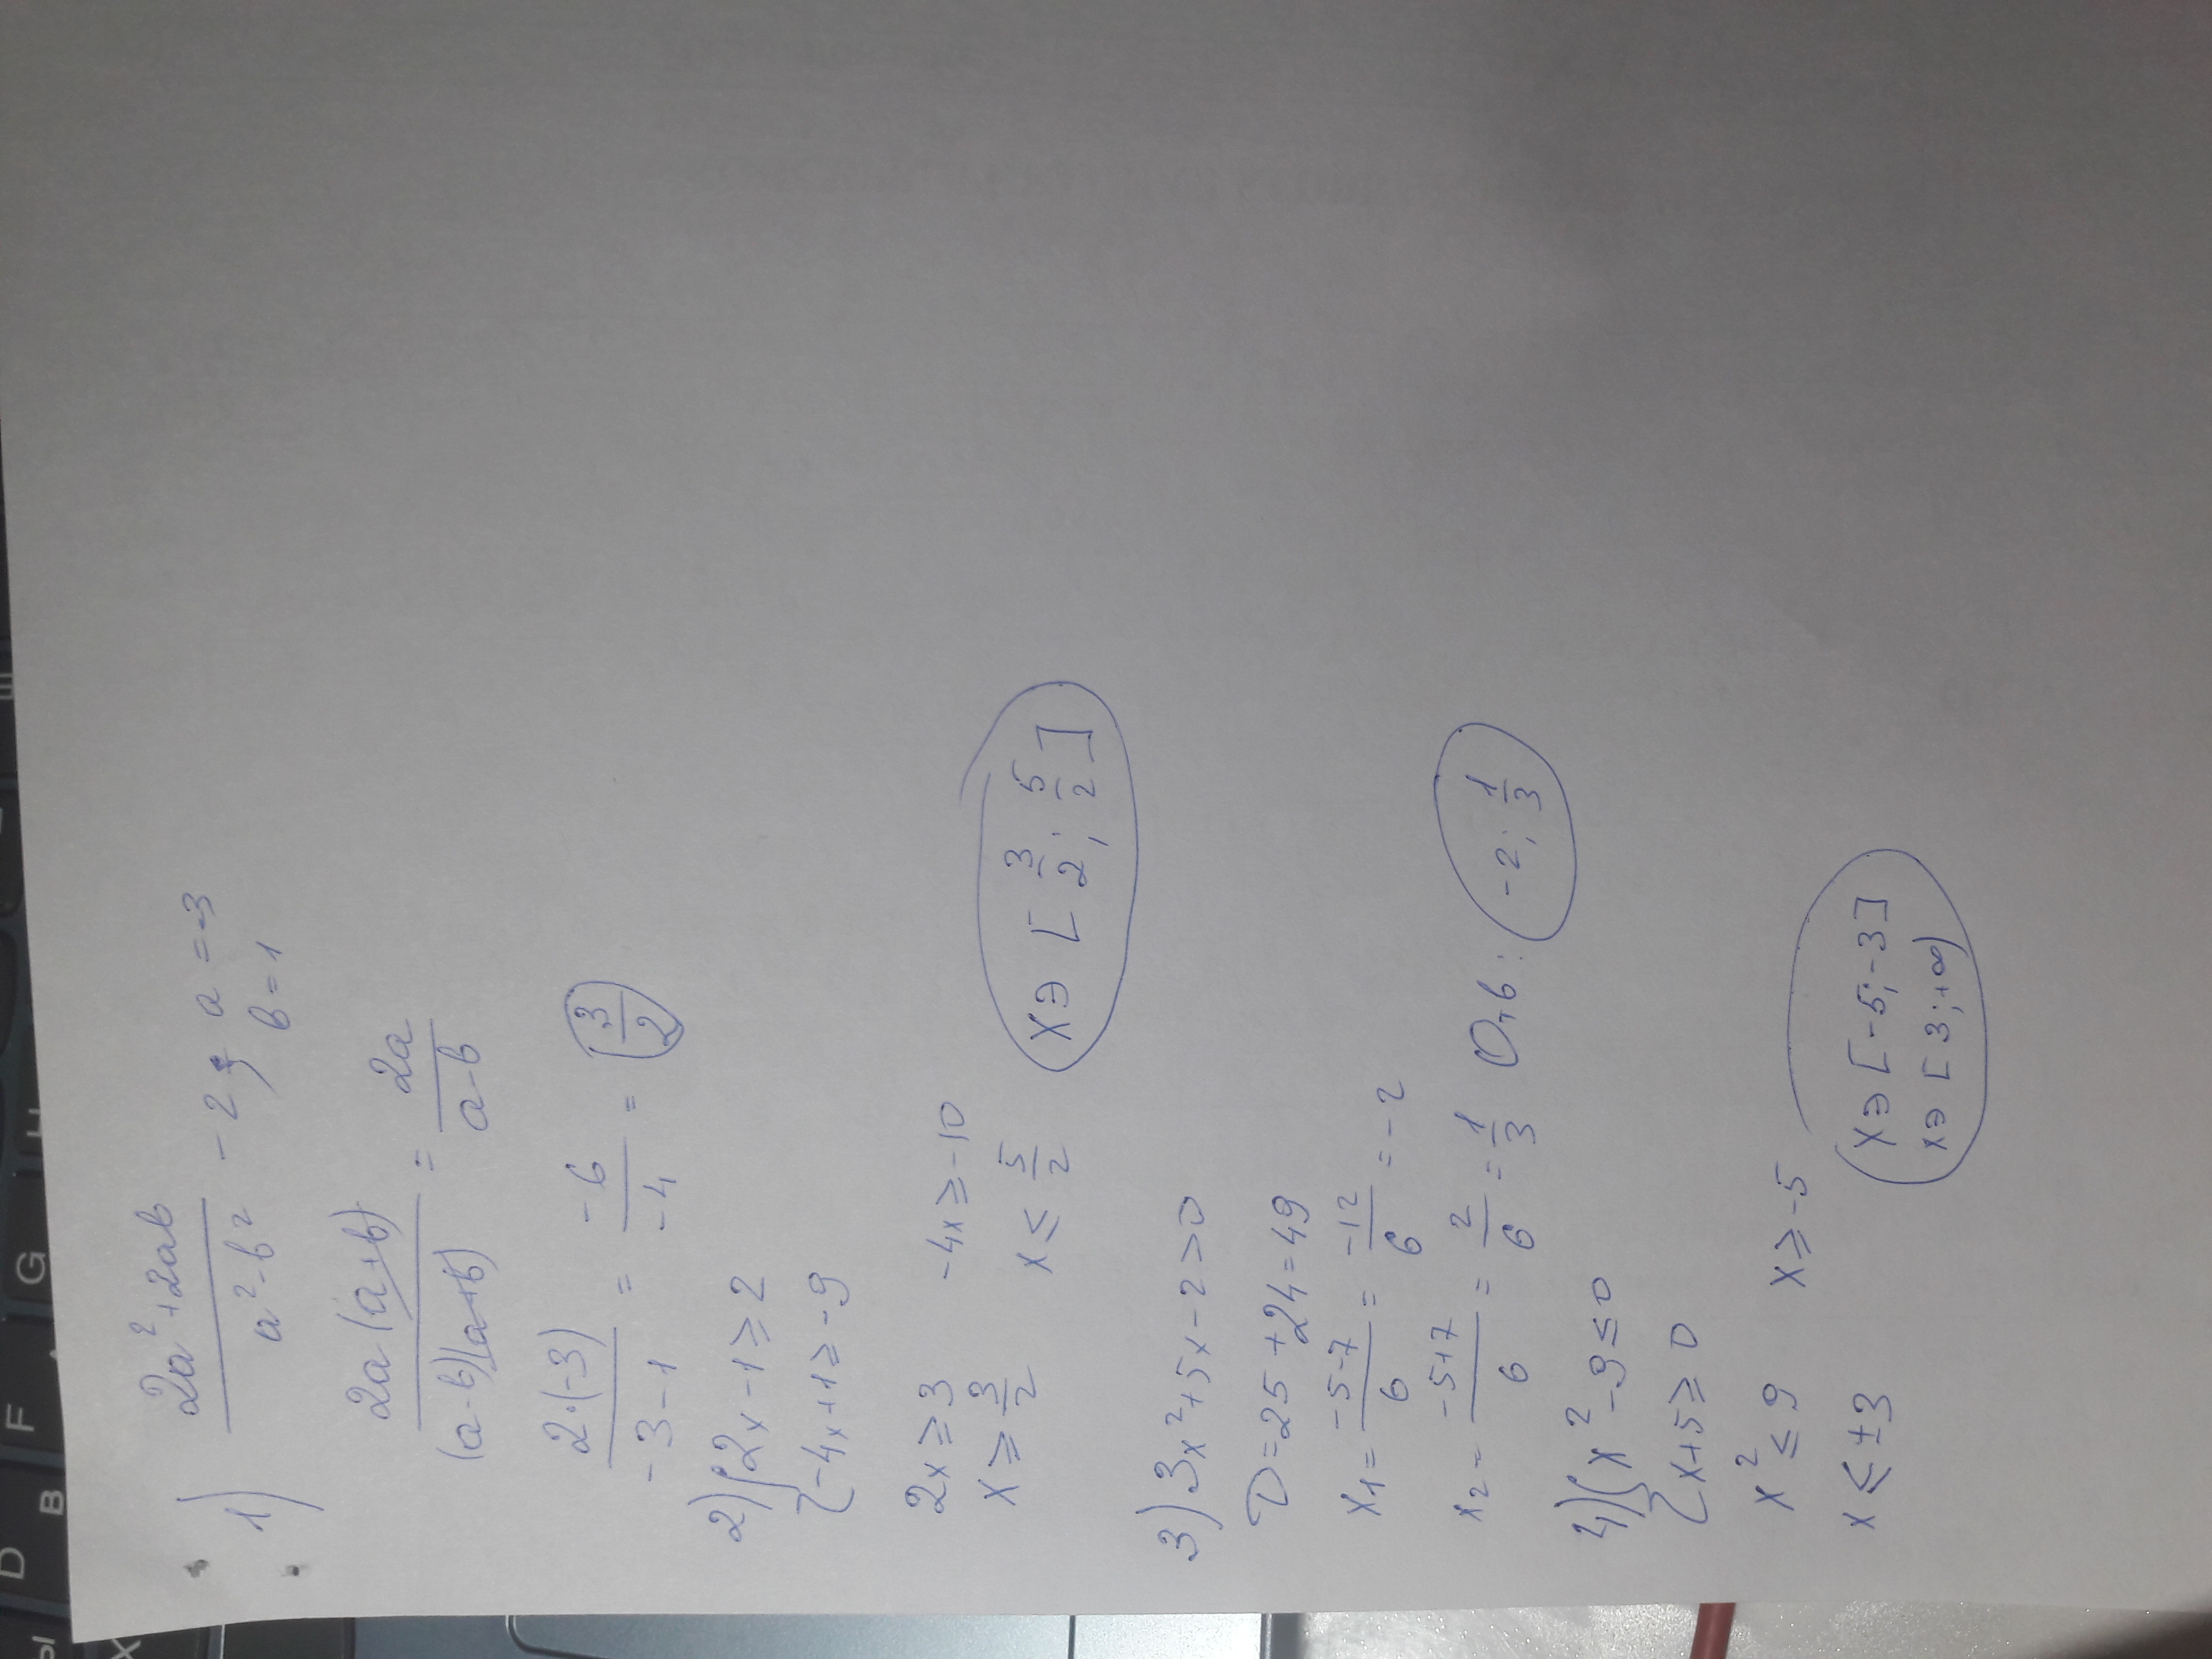 1) \frac{2a²+2ab}{a²-b²} - 2 ; a = -3
b = 1
\frac{2a(a+b)}{(a-b)(a+b)} = \frac{2a}{a-b}
\frac{2·(-3)}{-3-1} = \frac{-6}{-4} = \frac{3}{2}
2) { 2x-1 ≥ 2
{ -4x+1 ≥ -9
2x ≥ 3 -4x ≥ -10
x ≥ \frac{3}{2} x ≤ \frac{5}{2} x ∋ [\frac{3}{2}; \frac{5}{2}]
3) 3x²+5x-2 ≥ 0
D = 25+24 = 49
x₁ = \frac{-5-7}{6} = \frac{-12}{6} = -2
x₂ - \frac{-5+7}{6} = \frac{2}{6} = \frac{1}{3} Отв: -2; \frac{1}{3}
4) { x²-9 ≤ 0
{ x+5 ≥ 0
x² ≤ 9 x ≥ -5
x ≤ ±3 x ∋ [-5; -3]
x ∋ [3; +∞)
D
F
G
H
B
X
Ы